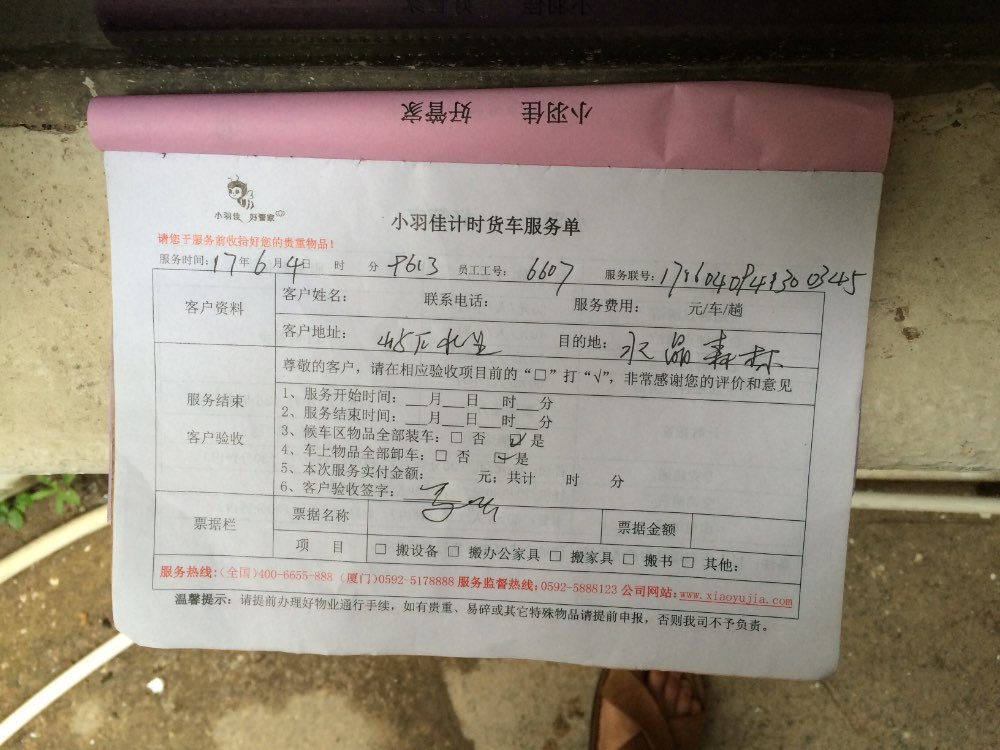 小羽佳 好管家
小羽佳 好管家
小羽佳计时货车服务单
请您于服务前收拾好您的贵重物品！
服务时间：17年6月4日 时 分 员工工号：6607 服务联号：
客户资料
客户姓名： 联系电话： 服务费用： 元/车/趟
客户地址： 目的地：水晶森林
服务结束
客户验收
尊敬的客户，请在相应验收项目前的“□”打“√”，非常感谢您的评价和意见
1、服务开始时间：___月___日___时___分
2、服务结束时间：___月___日___时___分
3、候车区物品全部装车：□ 否 ☑ 是
4、车上物品全部卸车：□ 否 ☑ 是
5、本次服务实付金额： 元；共计 时 分
6、客户验收签字：
票据栏 票据名称 票据金额
项 目 □ 搬设备 □ 搬办公家具 □ 搬家具 □ 搬书 □ 其他：
服务热线：（全国）400-6655-888（厦门）0592-5178888 服务监督热线：0592-5888123 公司网站：www.xiaoyujia.com
温馨提示：请提前办理好物业通行手续，如有贵重、易碎或其它特殊物品请提前申报，否则我司不予负责。